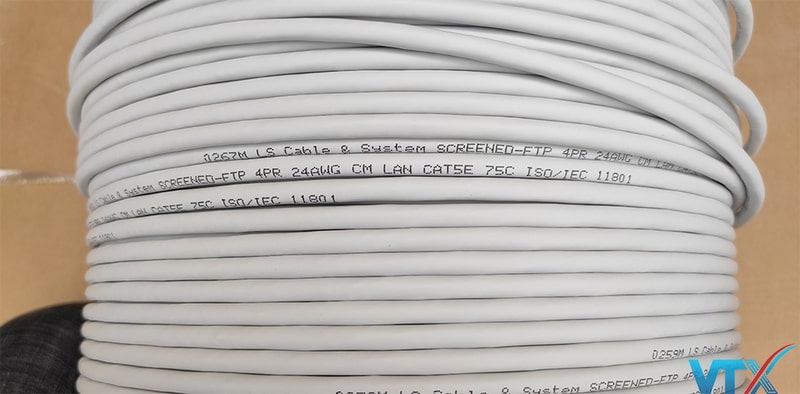 0267M LS Cable & System SCREENED-FTP 4PR 24AWG CM LAN
Cable & System SCREENED-FTP 4PR 24AWG CM LAN CAT5E 75C ISO/IEC 11801
24AWG CM LAN CAT5E 75C ISO/IEC 11801
11801
0259M LS Cable &
LS Cable & System SCREENED-FTP 4PR
VTX